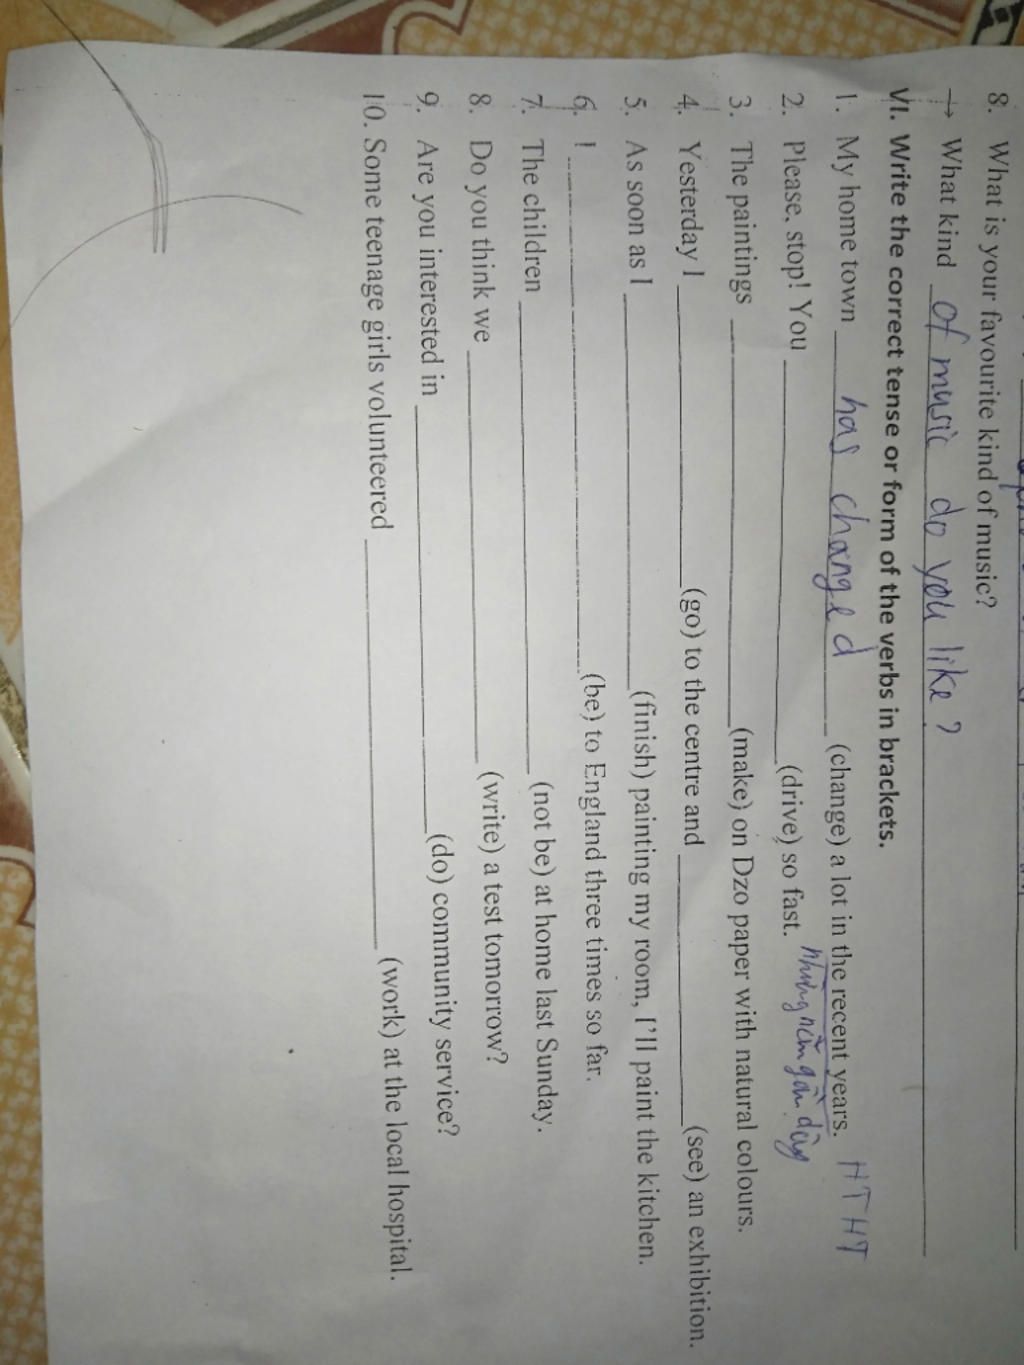 8. What is your favourite kind of music?
→ What kind of music do you like?
VI. Write the correct tense or form of the verbs in brackets.
1. My home town has changed (change) a lot in the recent years. HTHT
những năm gần đây
2. Please, stop! You ____ (drive) so fast.
3. The paintings ____ (make) on Dzo paper with natural colours.
4. Yesterday I ____ (go) to the centre and ____ (see) an exhibition.
5. As soon as I ____ (finish) painting my room, I'll paint the kitchen.
6. I ____ (be) to England three times so far.
7. The children ____ (not be) at home last Sunday.
8. Do you think we ____ (write) a test tomorrow?
9. Are you interested in ____ (do) community service?
10. Some teenage girls volunteered ____ (work) at the local hospital.